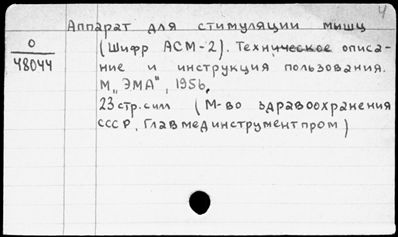 4
Аппарат для стимуляции мышц
О
48044
(Шифр АСМ-2). Техническое описа-
ние и инструкция пользования.
М., "ЭМА", 1956.
23 стр. с илл (М-во здравоохранения
СССР, Главмединструментпром)